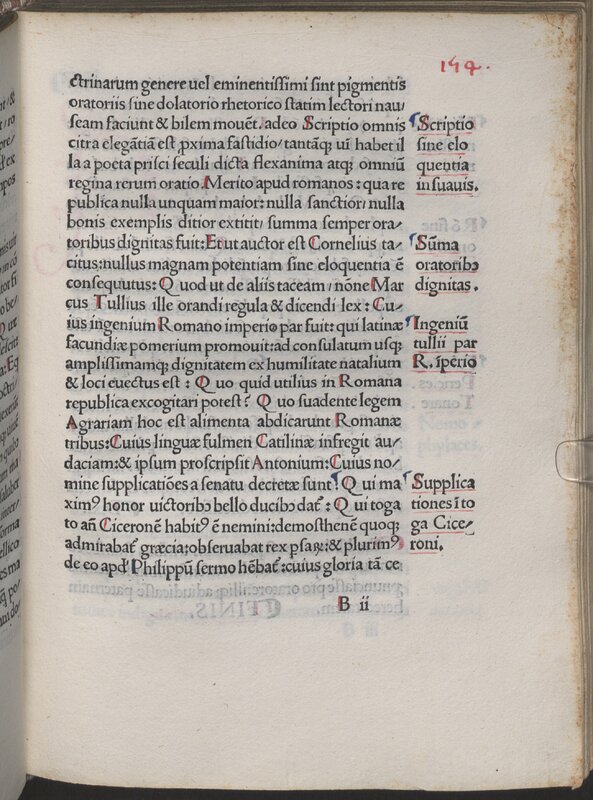 194.
ctrinarum genere uel eminentissimi sint pigmentis
oratoriis sine dolatorio rhetorico statim lectori nau/
seam faciunt & bilem mouēt. adeo Scriptio omnis
citra elegātiā est ꝓxima fastidio/ tantāqꝫ ui habet il
la a poeta prisci seculi dicta flexanima atqꝫ omniū
regina rerum oratio. Merito apud romanos: qua re
publica nulla unquam maior: nulla sanctior/ nulla
bonis exemplis ditior extitit/ summa semper ora/
toribus dignitas fuit: Et ut auctor est Cornelius ta/
citus: nullus magnam potentiam sine eloquentia ē
consequutus: Quod ut de aliis taceam/ nōne Mar
cus Tullius ille orandi regula & dicendi lex: Cu/
ius ingenium Romano imperio par fuit: qui latinæ
facundiæ pomerium promouit: ad consulatum usqꝫ
amplissimamqꝫ dignitatem ex humilitate natalium
& loci euectus est: Quo quid utilius in Romana
republica excogitari potest? Quo suadente legem
Agrariam hoc est alimenta abdicarunt Romanæ
tribus: Cuius linguæ fulmen Catilinæ infregit au/
daciam: & ipsum proscripsit Antonium: Cuius no/
mine supplicatiões a senatu decretæ sunt: Qui ma
ximꝰ honor uictoribꝰ bello ducibꝰ dat̄: Qui toga
to añ Ciceronē habitꝰ ē nemini: demosthenē quoqꝫ
admirabat̄ græcia: obseruabat rex psaꝝ: & plurimꝰ
de eo apđ Philippū sermo hēbat̄: cuius gloria tā ce
B ii
Scriptio
sine elo
quentia
insuauis.
Sūma
oratoribꝰ
dignitas.
Ingeniū
tullii par
R. īperio
Supplica
tiones ī to
ga Cice/
roni.